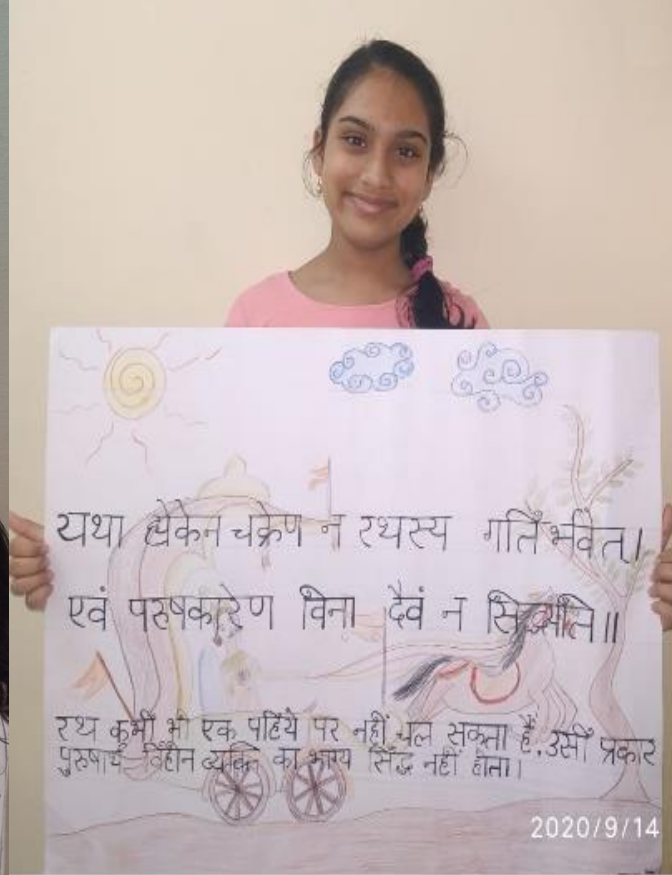 यथा ह्येकेन चक्रेण न रथस्य गतिर्भवेत्।
एवं परुषकारेण विना दैवं न सिद्ध्यति॥
रथ कभी भी एक पहिये पर नहीं चल सकता है, उसी प्रकार
पुरुषार्थ विहीन व्यक्ति का भाग्य सिद्ध नहीं होता।
2020/9/14